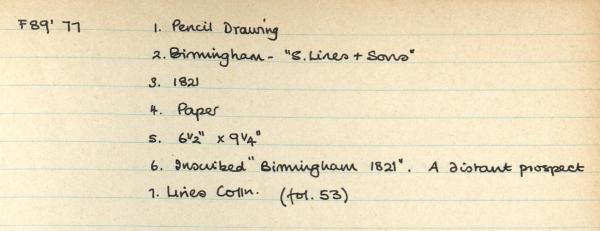 F89' 77 1. Pencil Drawing
2. Birmingham - "S. Lines + Sons"
3. 1821
4. Paper
5. 6½" x 9¼"
6. Inscribed "Birmingham 1821". A distant prospect
7. Lines Colln. (fol. 53)